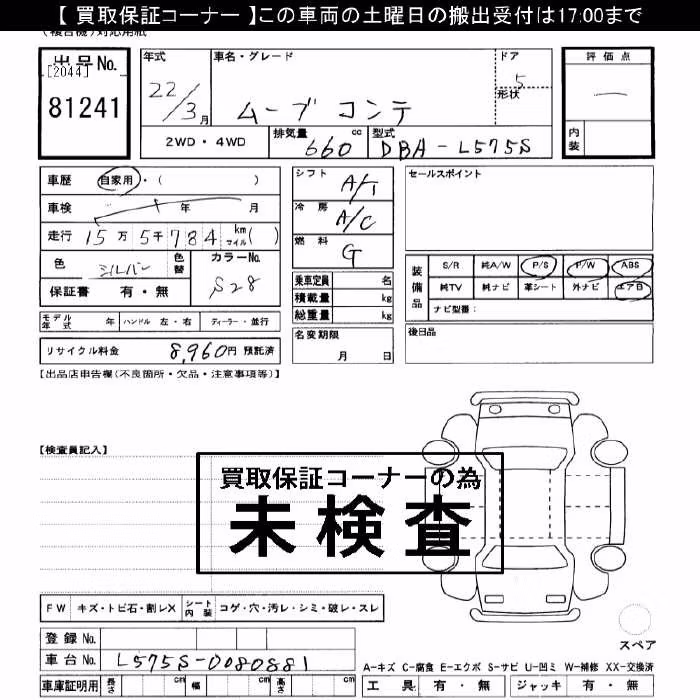 【 買取保証コーナー 】この車両の土曜日の搬出受付は17:00まで
出品No. [2044] 81241
年式 22/3月
車名・グレード ムーブ コンテ
ドア 5 形状
評価点 —
内装
2WD・4WD 排気量 660 cc 型式 DBA-L575S
車歴 自家用・( )
車検 年 月
走行 15万5千784 km マイル( )
色 シルバー 色替 カラーNo. S28
保証書 有・無
シフト A/T
冷房 A/C
燃料 G
乗車定員 名
積載量 kg
総重量 kg
セールスポイント
装備品 S/R 純A/W P/S P/W ABS
純TV 純ナビ 革シート 外ナビ エアB
ナビ型番:
モデル年式 年 ハンドル 左・右 ディーラー・並行
名変期限 月 日
後日品
リサイクル料金 8,960円 預託済
【出品店申告欄(不良箇所・欠品・注意事項等)】
【検査員記入】
買取保証コーナーの為
未検査
FW キズ・トビ石・割レX シート内装 コゲ・穴・汚レ・シミ・破レ・スレ
スペア
登録No.
車台No. L575S-0080881
A-キズ C-腐食 E-エクボ S-サビ U-凹ミ W-補修 XX-交換済
車庫証明用 長さ cm 幅 cm 高さ cm 工具 有・無 ジャッキ 有・無